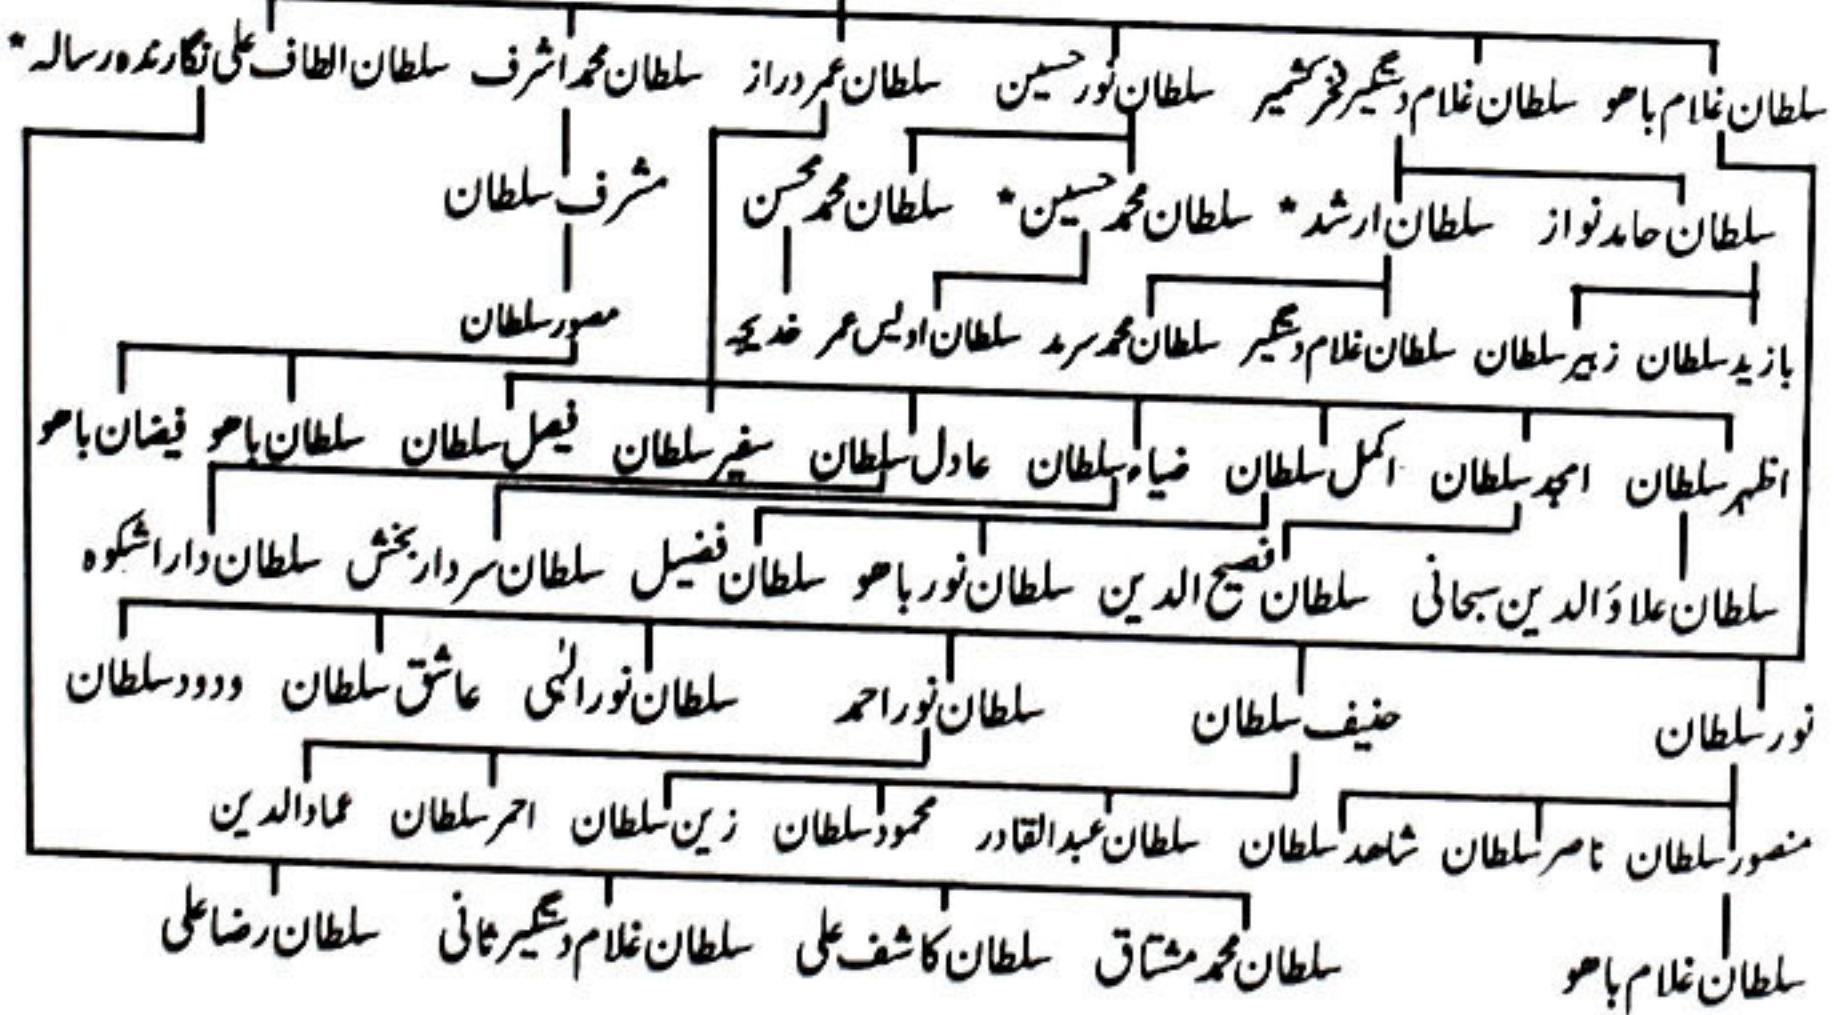 سلطان غلام باھو سلطان غلام دستگیر فخر کشمیر سلطان نور حسین سلطان عمر دراز سلطان محمد اشرف سلطان الطاف علی نگارندہ رسالہ *
سلطان حامد نواز سلطان ارشد * سلطان محمد حسین * سلطان محمد محسن مشرف سلطان
بازید سلطان زبیر سلطان سلطان غلام دستگیر سلطان محمد سرمد سلطان اویس عمر خدیجہ مصور سلطان
اظہر سلطان امجد سلطان اکمل سلطان ضیاء سلطان عادل سلطان سفیر سلطان فیصل سلطان سلطان باھو فیضان باھو
سلطان علاؤالدین سبحانی سلطان فصیح الدین سلطان نور باھو سلطان فضیل سلطان سردار بخش سلطان دارا شکوہ
نور سلطان حنیف سلطان سلطان نور احمد سلطان نور الٰہی عاشق سلطان ودود سلطان
منصور سلطان ناصر سلطان شاھد سلطان سلطان عبدالقادر محمود سلطان زین سلطان احمر سلطان عمادالدین
سلطان غلام باھو سلطان محمد مشتاق سلطان کاشف علی سلطان غلام دستگیر ثانی سلطان رضا علی